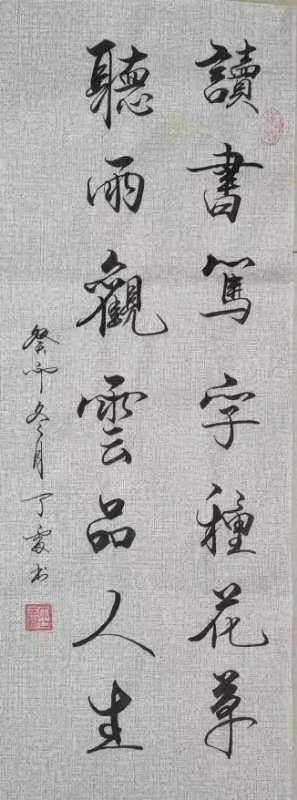 讀書寫字種花草
聽雨觀雲品人生
癸卯冬月丁霞书